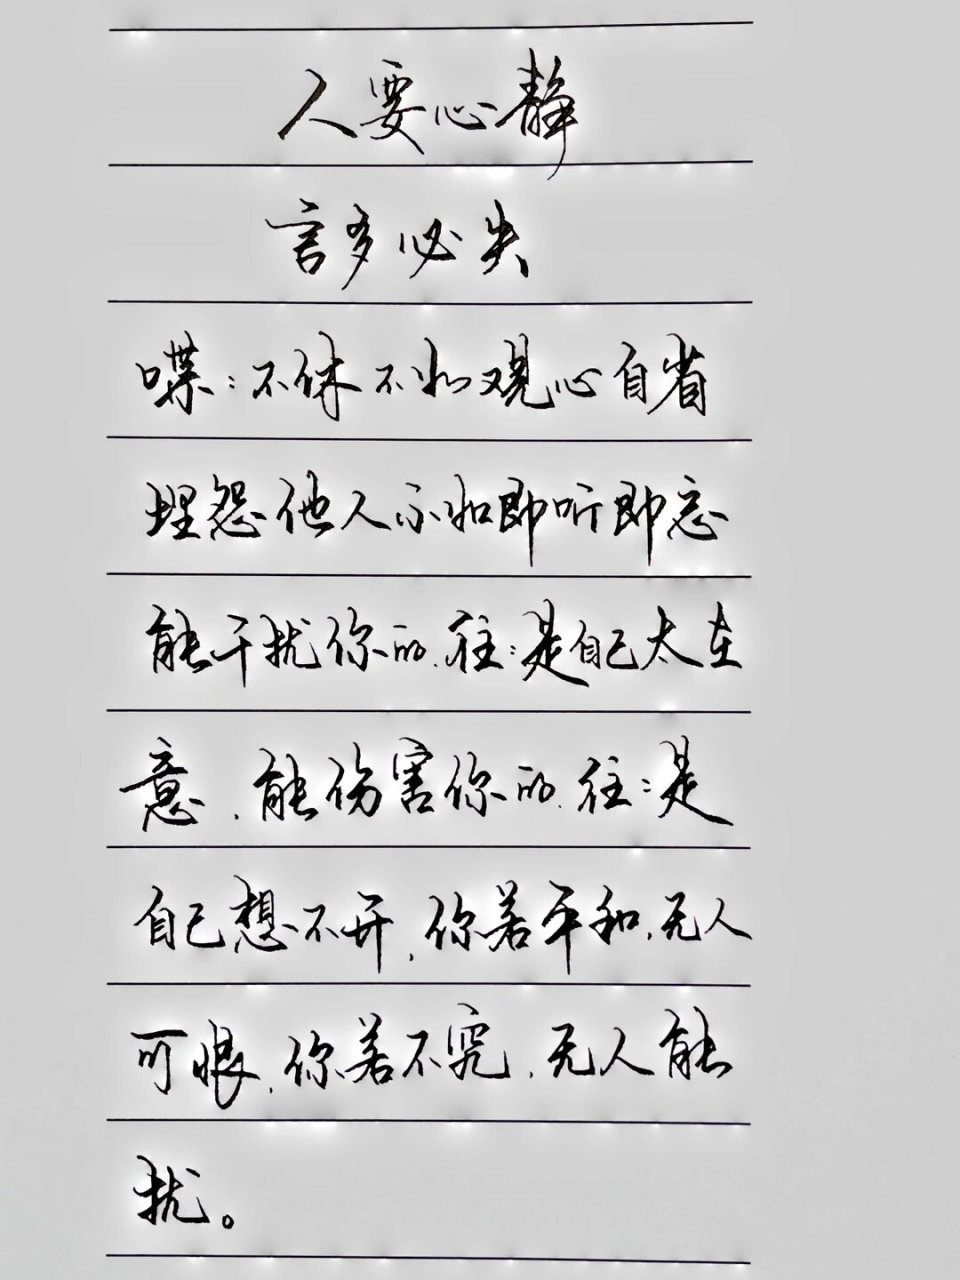 人要心静
言多必失
喋:不休不如观心自省
埋怨他人不如即听即忘
能干扰你的.往:是自己太在
意.能伤害你的.往:是
自己想不开,你若平和.无人
可恨,你若不究.无人能
扰。